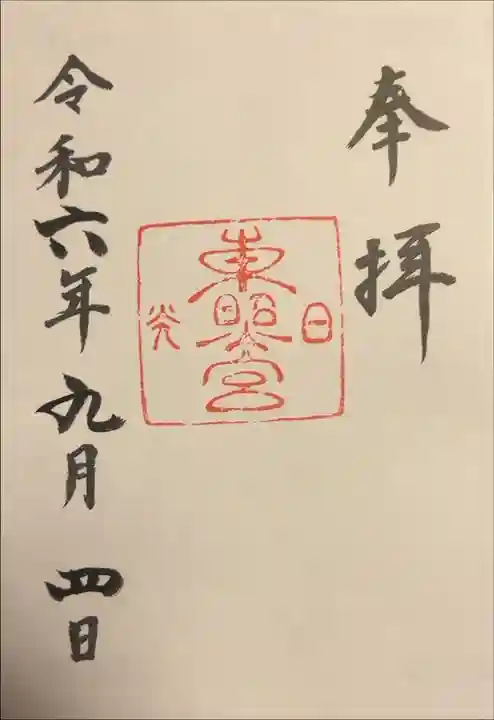 奉拝
日
東照宮
光
令和六年九月四日